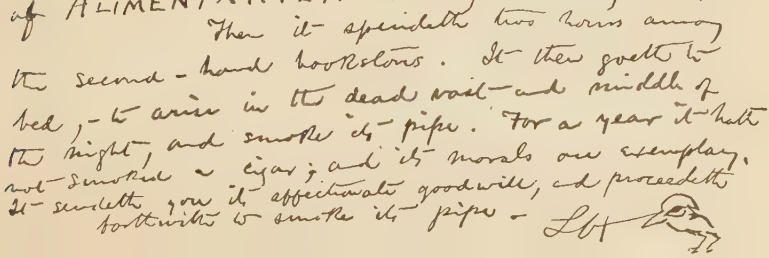 of ALIMENT
Then it spendeth two hours among
the second-hand bookstores. It then goeth to
bed, - to arise in the dead vast and middle of
the night, and smoke its pipe. For a year it hath
not smoked a cigar; and its morals are exemplary.
It sendeth you its affectionate goodwill, and proceedeth
forthwith to smoke its pipe -